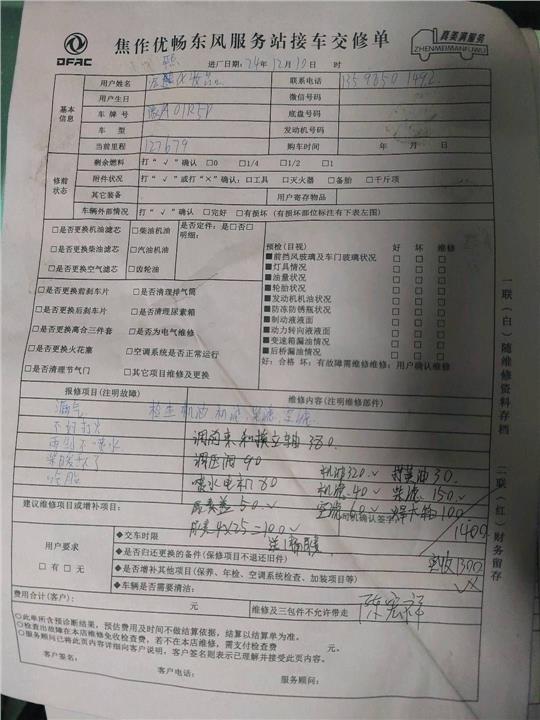 DFAC
焦作优畅东风服务站接车交修单
真美满服务
ZHENMEIMANFUWU
进厂日期：24年12月10日 时
基本信息
用户姓名
联系电话
用户生日
微信号码
车牌号
底盘号码
车 型
发动机号码
当前里程 127679
购车时间 年 月 日
修前状态
剩余燃料 打“√”确认 □0 □1/4 □1/2 □1
附件状况 打“√”或打“×”确认：□工具 □灭火器 □备胎 □千斤顶
其它装备
用户寄存物品
车辆外部情况 打“√”确认 □完好 □有损坏（有损坏部位标注有下表左图）
□是否更换机油滤芯 □柴油机油
□是否更换柴油滤芯 □汽油机油
□是否更换空气滤芯 □齿轮油
是否定件：是□否□
明细：
□是否更换前刹车片 □是否清理排气筒
□是否更换后刹车片 □是否清理尿素箱
□是否更换离合三件套 □是否为电气维修
□是否更换火花塞 □空调系统是否正常运行
□是否清理节气门 □其它项目维修及更换
预检（目视） 好 坏 维修
■前挡风玻璃及车门玻璃状况 □ □ □
■灯具情况 □ □ □
■油量状况 □ □ □
■轮胎状况 □ □ □
■发动机机油状况 □ □ □
■防冻防锈瓶状况 □ □ □
■制动液液面 □ □ □
■动力转向液液面 □ □ □
■变速箱漏油情况 □ □ □
■后桥漏油情况 □ □ □
好：合格 坏：有故障需维修维修：用户确认维修
报修项目（注明故障）
维修内容（注明维修部件）
漏气
检查机油 机滤 柴滤 空滤
不好打火
雨刮不喷水
调压阀 90
喷水电机 80
机油320√
机滤.40√ 柴滤 150√
空滤 60√
100
50√
4×25=100√
1400
实收1300
建议维修项目或增补项目：
司机确认签字
用户要求
□有 □无
◆交车时限
◆是否归还更换的备件（保修项目不退还旧件）
◆是否增补其他项目（保养、年检、空调系统检查、加装项目等）
◆车辆是否需要清洁：
费用合计（客户）： 元
维修及三包件不允许带走
陈宏祥
○此单所含预诊断结果，预估费用及时间不做结算依据，结算以结算单为准。
○检查出故障在本店维修免收检查费，若不在本店维修，需支付检查费 元。
○服务顾问已将此页内容详细向客户说明，客户签名则表示已理解并接受此页内容。
客户签名：
客户电话：
服务顾问：
一联（白）随维修资料存档
二联（红）财务留存